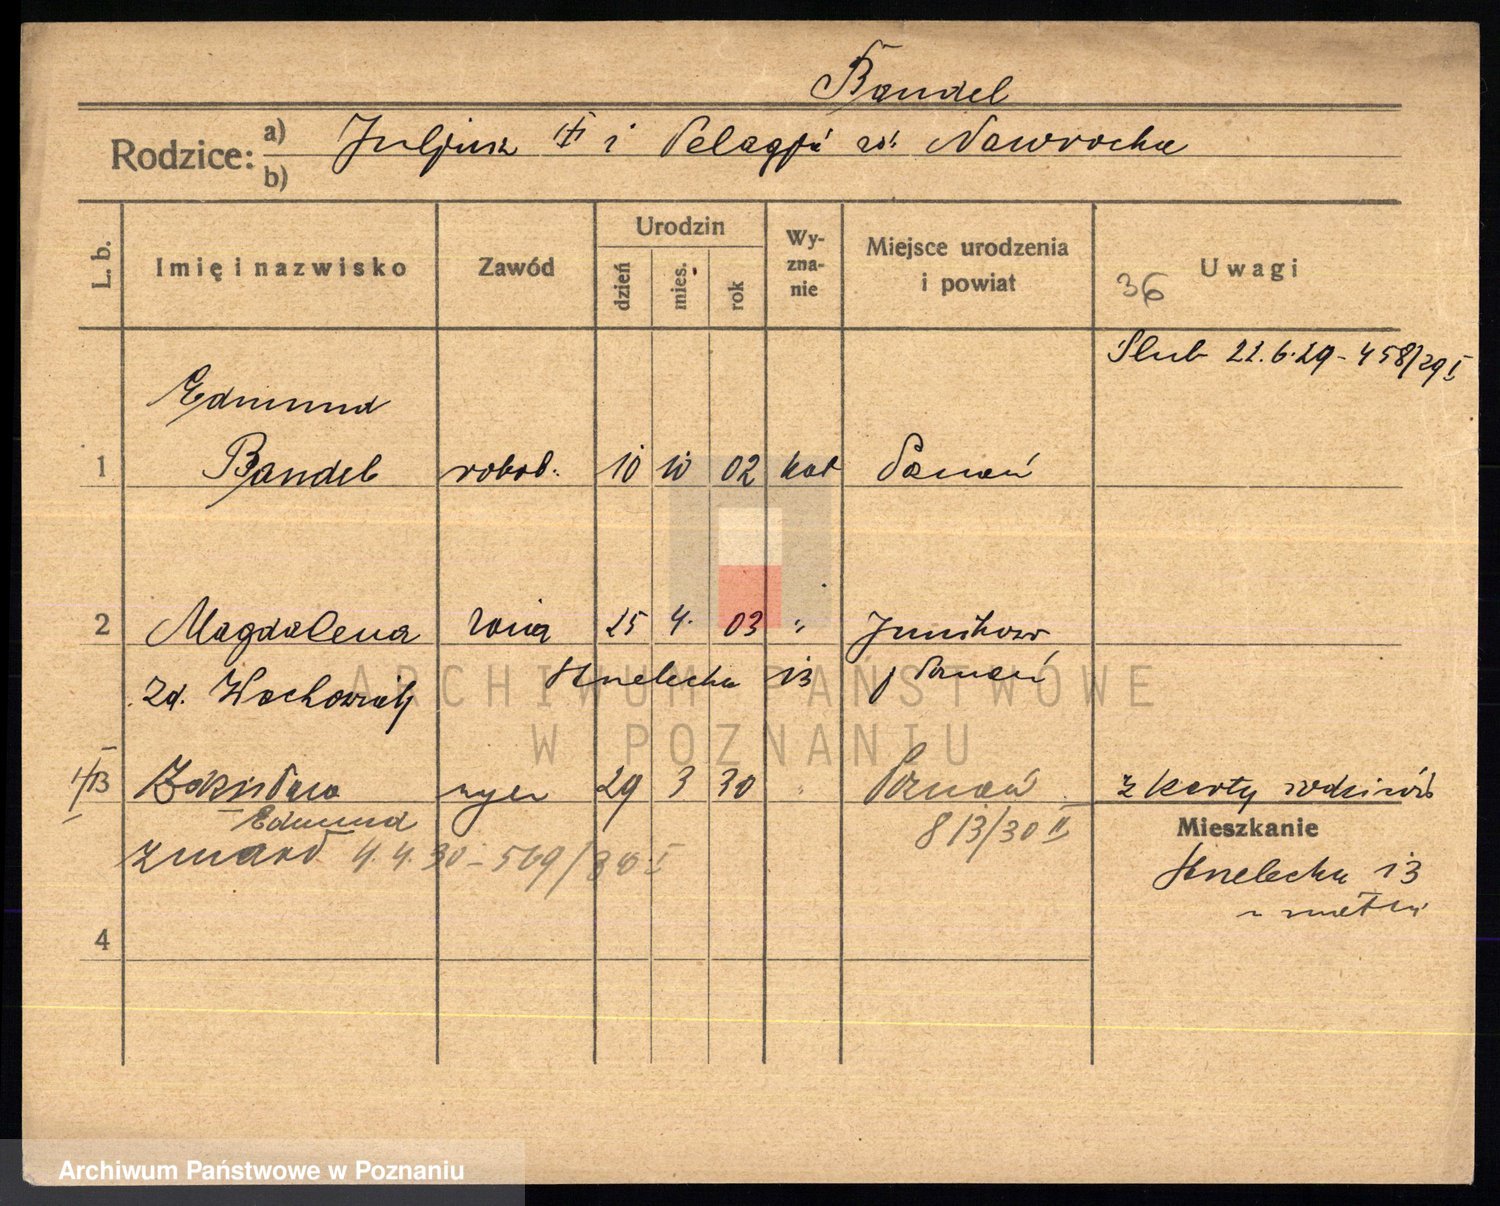 Bandel
Rodzice: a) Juljusz i Pelagja Nawrocka
b)
L. b. Imię i nazwisko Zawód Urodzin dzień mies. rok Wyznanie Miejsce urodzenia i powiat Uwagi
36
Ślub 22.6.29 - 458/29 I
Edmund
1 Bandel robot. 10 10 02 kat Poznań
2 Magdalena żona 25 4. 03 " Junikowo
Strzelecka 13 Poznań
zd.
3 29 3 30 " Poznań z karty
Edmund 813/30 II
Mieszkanie
zmarł 4.4.30 - 569/30 I
Strzelecka 13
4
ARCHIWUM PAŃSTWOWE
W POZNANIU
Archiwum Państwowe w Poznaniu